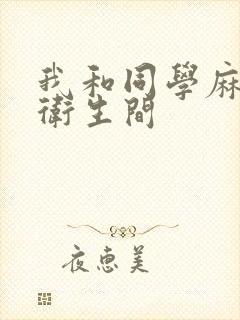 我和同學麻
衛生間
夜惠美